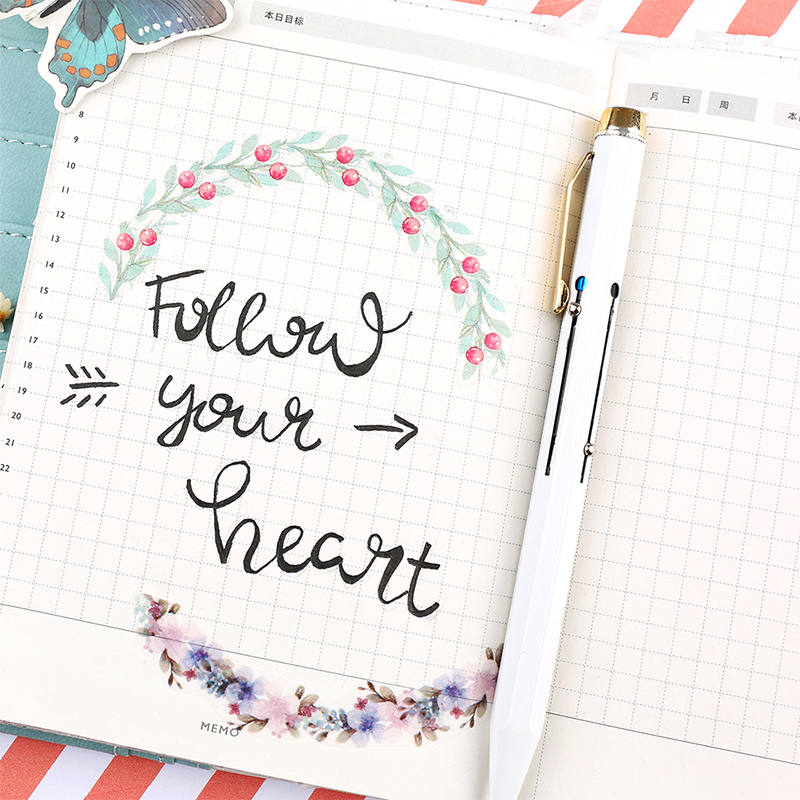 本日目标
月 日 周
本日
8
9
10
11
12
13
14
15
16
17
18
19
20
21
22
Follow
your
heart
MEMO